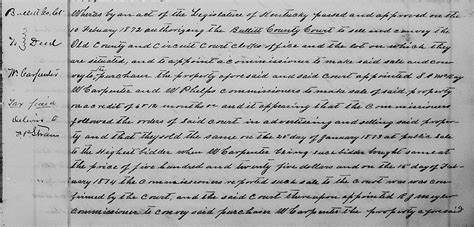 Bullitt Co. Ct.
To } Deed
W. Carpenter
Tax paid
Deliv'd to
Straus
Whereas by an act of the Legislature of Kentucky passed and approved on the
10 February 1872 authorizing the Bullitt County Court to sell and convey the
Old County and Circuit Court Clerks office and the lot on which they
are situated, and to appoint a commissioner to make said sale and con-
vey to purchaser the property aforesaid and said Court appointed
W Carpenter and W Phelps Commissioners to make sale of said property
on a credit of months and it appearing that the Commissioners
followed the orders of said court in advertising and selling said prop-
erty and that they sold the same on the day of January 1873 at public sale
to the Highest bidder when W Carpenter being such bidder bought same at
the price of five hundred and twenty five dollars and on the day of Feb-
ruary 1874 the Commissioners reported such sale to the Court was con-
firmed by the Court, and the said Court thereupon appointed
Commissioner to convey said purchaser W Carpenter the property aforesaid